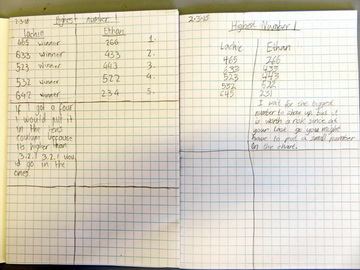 2-3-15 Highest number!
Lachie Ethan
465 winner 266 1.
633 winner 433 2.
523 winner 443 3.
532 winner 522 4.
642 winner 234 5.
If I got a four
I would put it
in the tens
coulum because
its higher than
3,2,1 3,2,1 wou
ld go in the
ones
2-3-15
Highest Number!
Lachie Ethan
465 265
633 433
523 443
532 522
643 231
I wait for the biggest
number to show up but it
is worth a risk since on
your last go you might
have to put a small number
in the